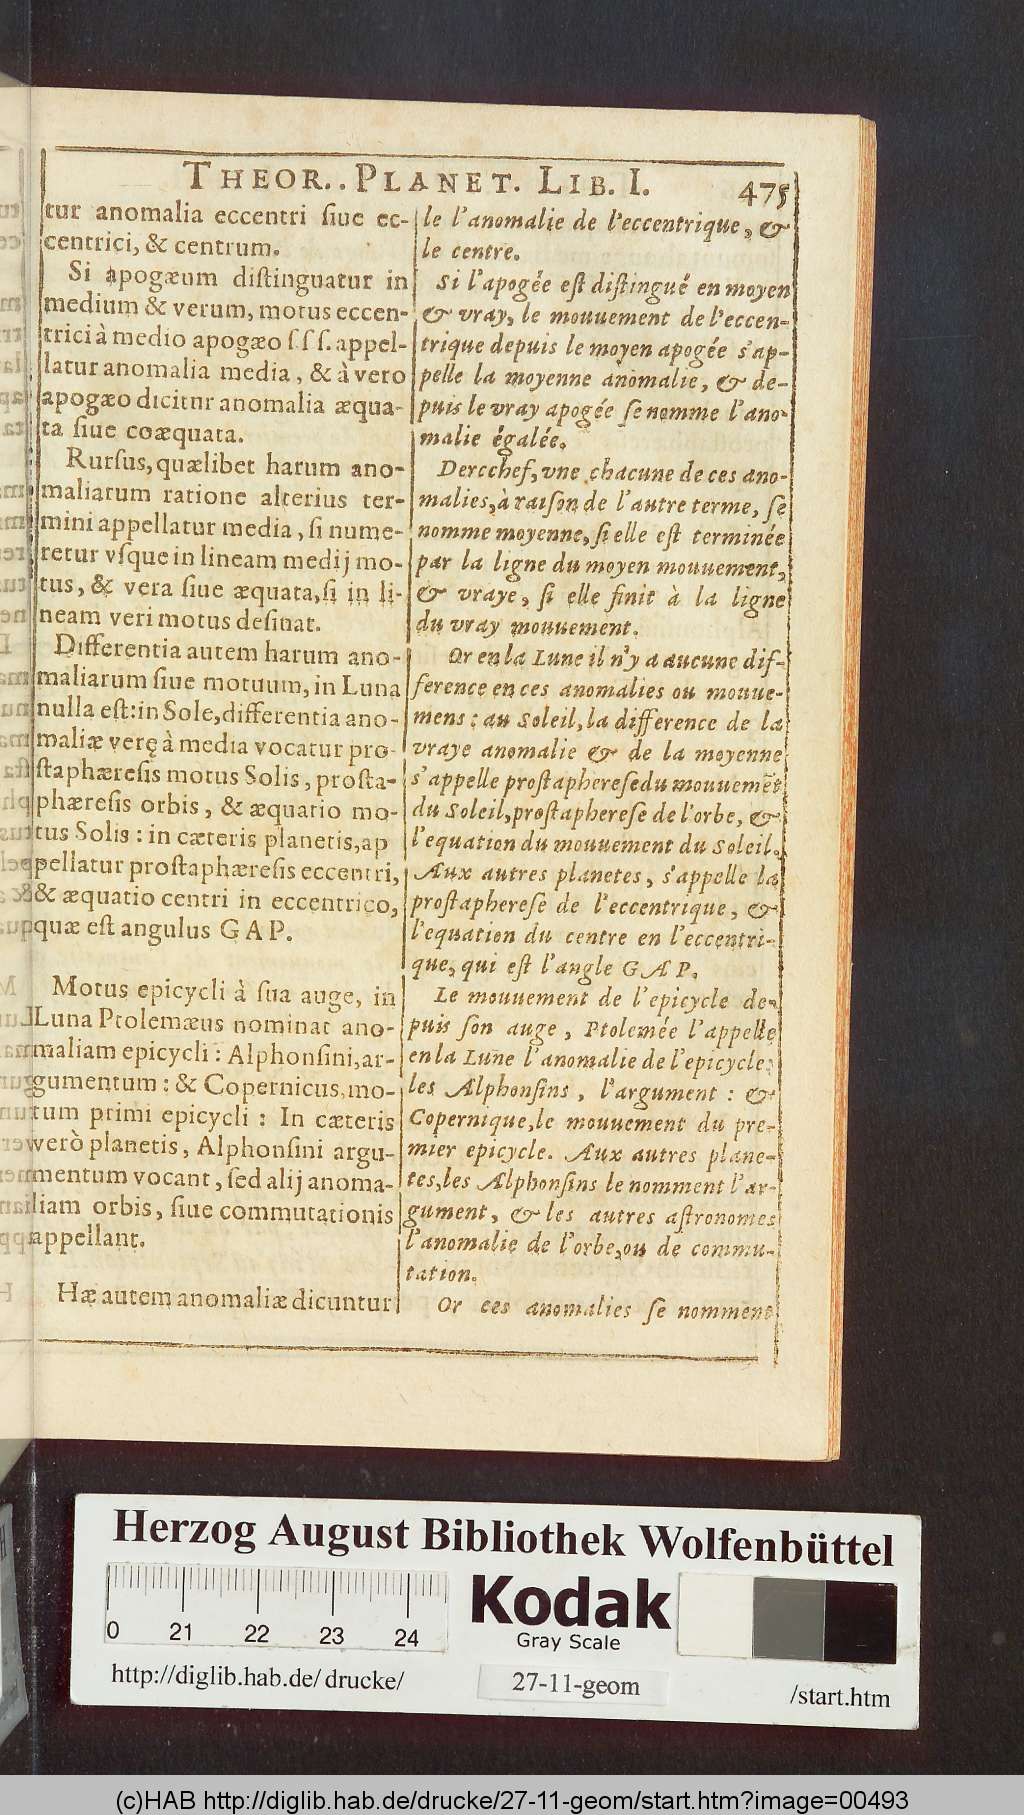 THEOR.. PLANET. LIB. I.
475
tur anomalia eccentri ſiue ec-
centrici, & centrum.
Si apogæum diſtinguatur in
medium & verum, motus eccen-
trici à medio apogæo ſ. ſ. ſ. appel-
latur anomalia media, & à vero
apogæo dicitur anomalia æqua-
ta ſiue coæquata.
Rurſus, quælibet harum ano-
maliarum ratione alterius ter-
mini appellatur media, ſi nume-
retur vſque in lineam medij mo-
tus, & vera ſiue æquata, ſi in li-
neam veri motus deſinat.
Differentia autem harum ano-
maliarum ſiue motuum, in Luna
nulla eſt: in Sole, differentia ano-
maliæ verę à media vocatur pro-
ſtaphæreſis motus Solis, proſta-
phæreſis orbis, & æquatio mo-
tus Solis : in cæteris planetis, ap
pellatur proſtaphæreſis eccentri,
& æquatio centri in eccentrico,
quæ eſt angulus G A P.
Motus epicycli à ſua auge, in
Luna Ptolemæus nominat ano-
maliam epicycli : Alphonſini, ar-
gumentum : & Copernicus, mo-
tum primi epicycli : In cæteris
verò planetis, Alphonſini argu-
mentum vocant, ſed alij anoma-
liam orbis, ſiue commutationis
appellant.
Hæ autem anomaliæ dicuntur
le l'anomalie de l'eccentrique, &
le centre.
Si l'apogée eſt diſtingué en moyen
& vray, le mouuement de l'eccen-
trique depuis le moyen apogée s'ap-
pelle la moyenne anomalie, & de-
puis le vray apogée ſe nomme l'ano-
malie égalée.
Dercchef, vne chacune de ces ano-
malies, à raiſon de l'autre terme, ſe
nomme moyenne, ſi elle eſt terminée
par la ligne du moyen mouuement,
& vraye, ſi elle finit à la ligne
du vray mouuement.
Or en la Lune il n'y a aucune dif-
ference en ces anomalies ou mouue-
mens : au Soleil, la difference de la
vraye anomalie & de la moyenne
s'appelle proſtaphereſe du mouuemẽt
du Soleil, proſtaphereſe de l'orbe, &
l'equation du mouuement du Soleil.
Aux autres planetes, s'appelle la
proſtaphereſe de l'eccentrique, &
l'equation du centre en l'eccentri-
que, qui eſt l'angle G A P.
Le mouuement de l'epicycle de-
puis ſon auge, Ptolemée l'appelle
en la Lune l'anomalie de l'epicycle:
les Alphonſins, l'argument : &
Copernique, le mouuement du pre-
mier epicycle. Aux autres plane-
tes, les Alphonſins le nomment l'ar-
gument, & les autres aſtronomes
l'anomalie de l'orbe, ou de commu-
tation.
Or ces anomalies ſe nomment
Herzog August Bibliothek Wolfenbüttel
0 21 22 23 24
Kodak
Gray Scale
http://diglib.hab.de/ drucke/
27-11-geom
/start.htm
(c)HAB http://diglib.hab.de/drucke/27-11-geom/start.htm?image=00493